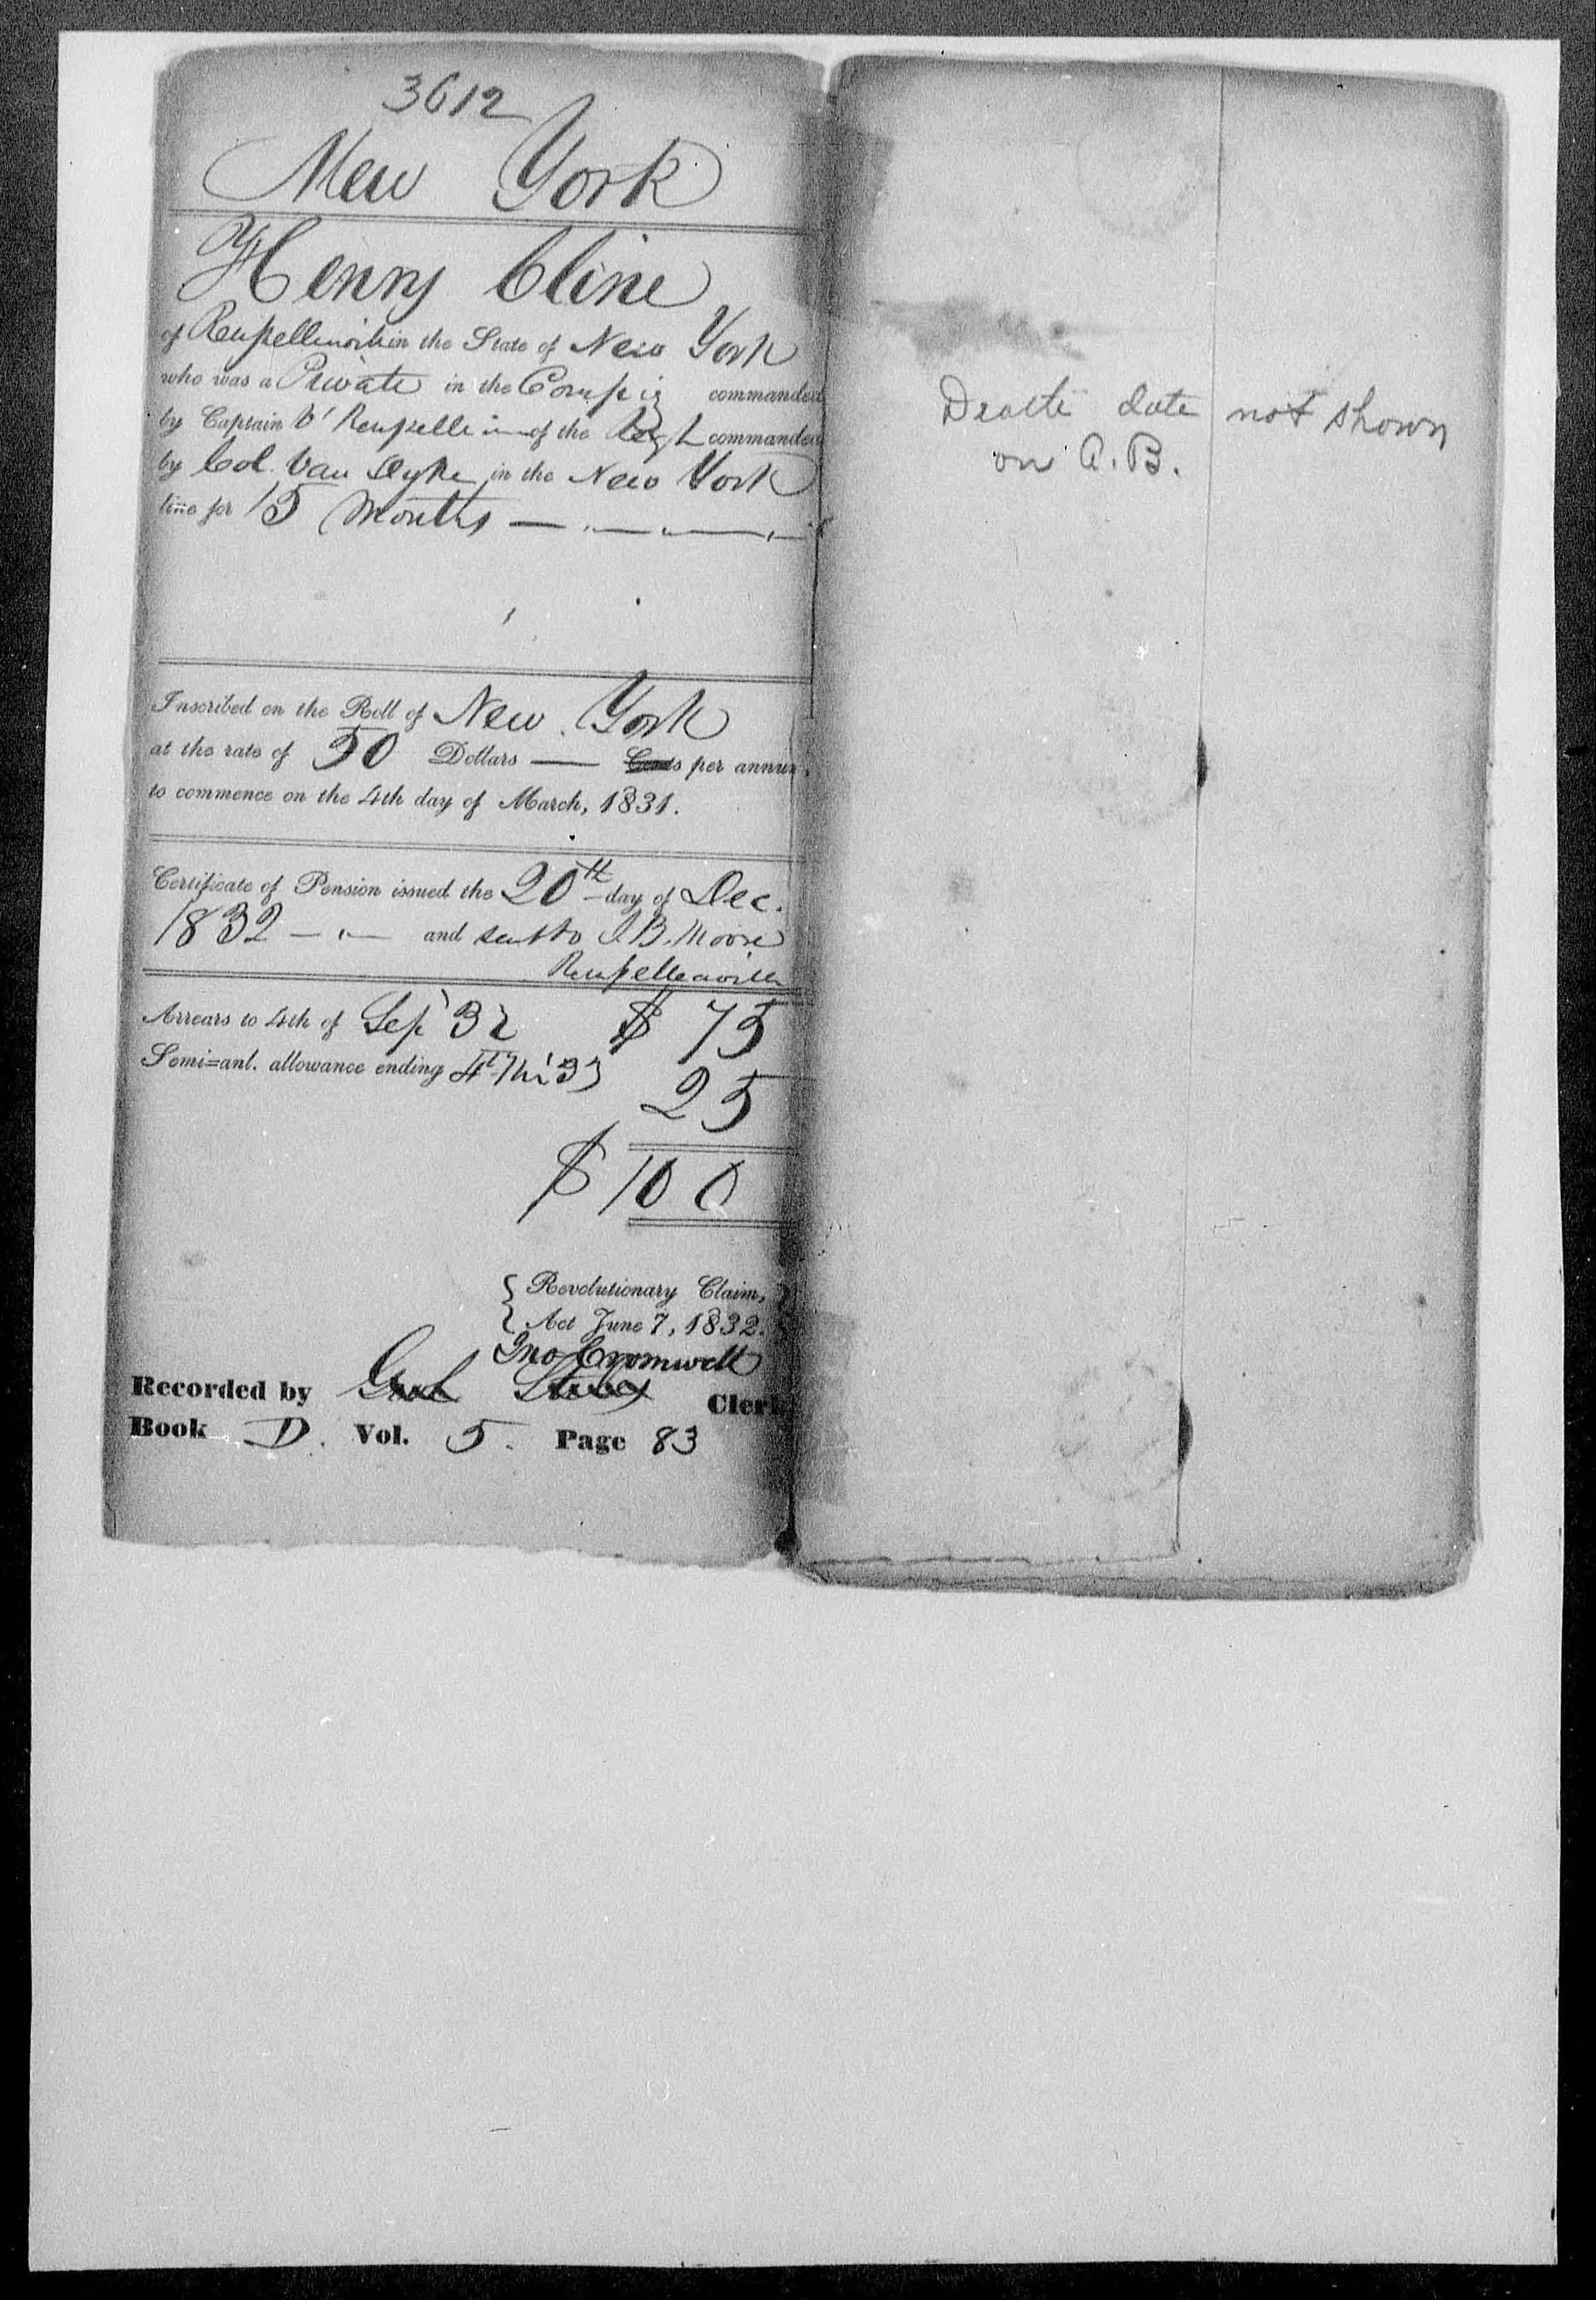 3612
New York
Henry Cline
of Renssellervill in the State of New York
who was a Private in the Compy commanded
by Captain V' Rensselle of the Regt commanded
by Col. Van Dyke in the New York
line for 15 Months
Inscribed on the Roll of New York
at the rate of 50 Dollars — Cents per annum,
to commence on the 4th day of March, 1831.
Certificate of Pension issued the 20th day of Dec.
1832 and sent to J B. Moore
Renssellaervill
Arrears to 4th of Sep '32 $ 75
Semi-anl. allowance ending 4th Mr '33 25
$ 100
Revolutionary Claim,
Act June 7, 1832.
Jno Cromwell
Recorded by Clerk
Book D. Vol. 5. Page 83
Death date not shown
on A. B.